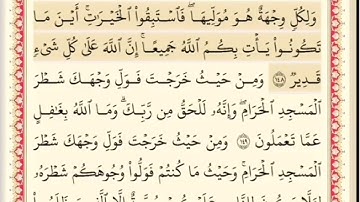 وَلِكُلٍّ وِجْهَةٌ هُوَ مُوَلِّيهَا ۖ فَاسْتَبِقُوا الْخَيْرَٰتِ ۚ أَيْنَ مَا
تَكُونُوا يَأْتِ بِكُمُ اللَّهُ جَمِيعًا ۚ إِنَّ اللَّهَ عَلَىٰ كُلِّ شَيْءٍ
قَدِيرٌ ١٤٨ وَمِنْ حَيْثُ خَرَجْتَ فَوَلِّ وَجْهَكَ شَطْرَ
الْمَسْجِدِ الْحَرَامِ ۖ وَإِنَّهُ لَلْحَقُّ مِن رَّبِّكَ ۗ وَمَا اللَّهُ بِغَٰفِلٍ
عَمَّا تَعْمَلُونَ ١٤٩ وَمِنْ حَيْثُ خَرَجْتَ فَوَلِّ وَجْهَكَ شَطْرَ
الْمَسْجِدِ الْحَرَامِ ۚ وَحَيْثُ مَا كُنتُمْ فَوَلُّوا وُجُوهَكُمْ شَطْرَهُ